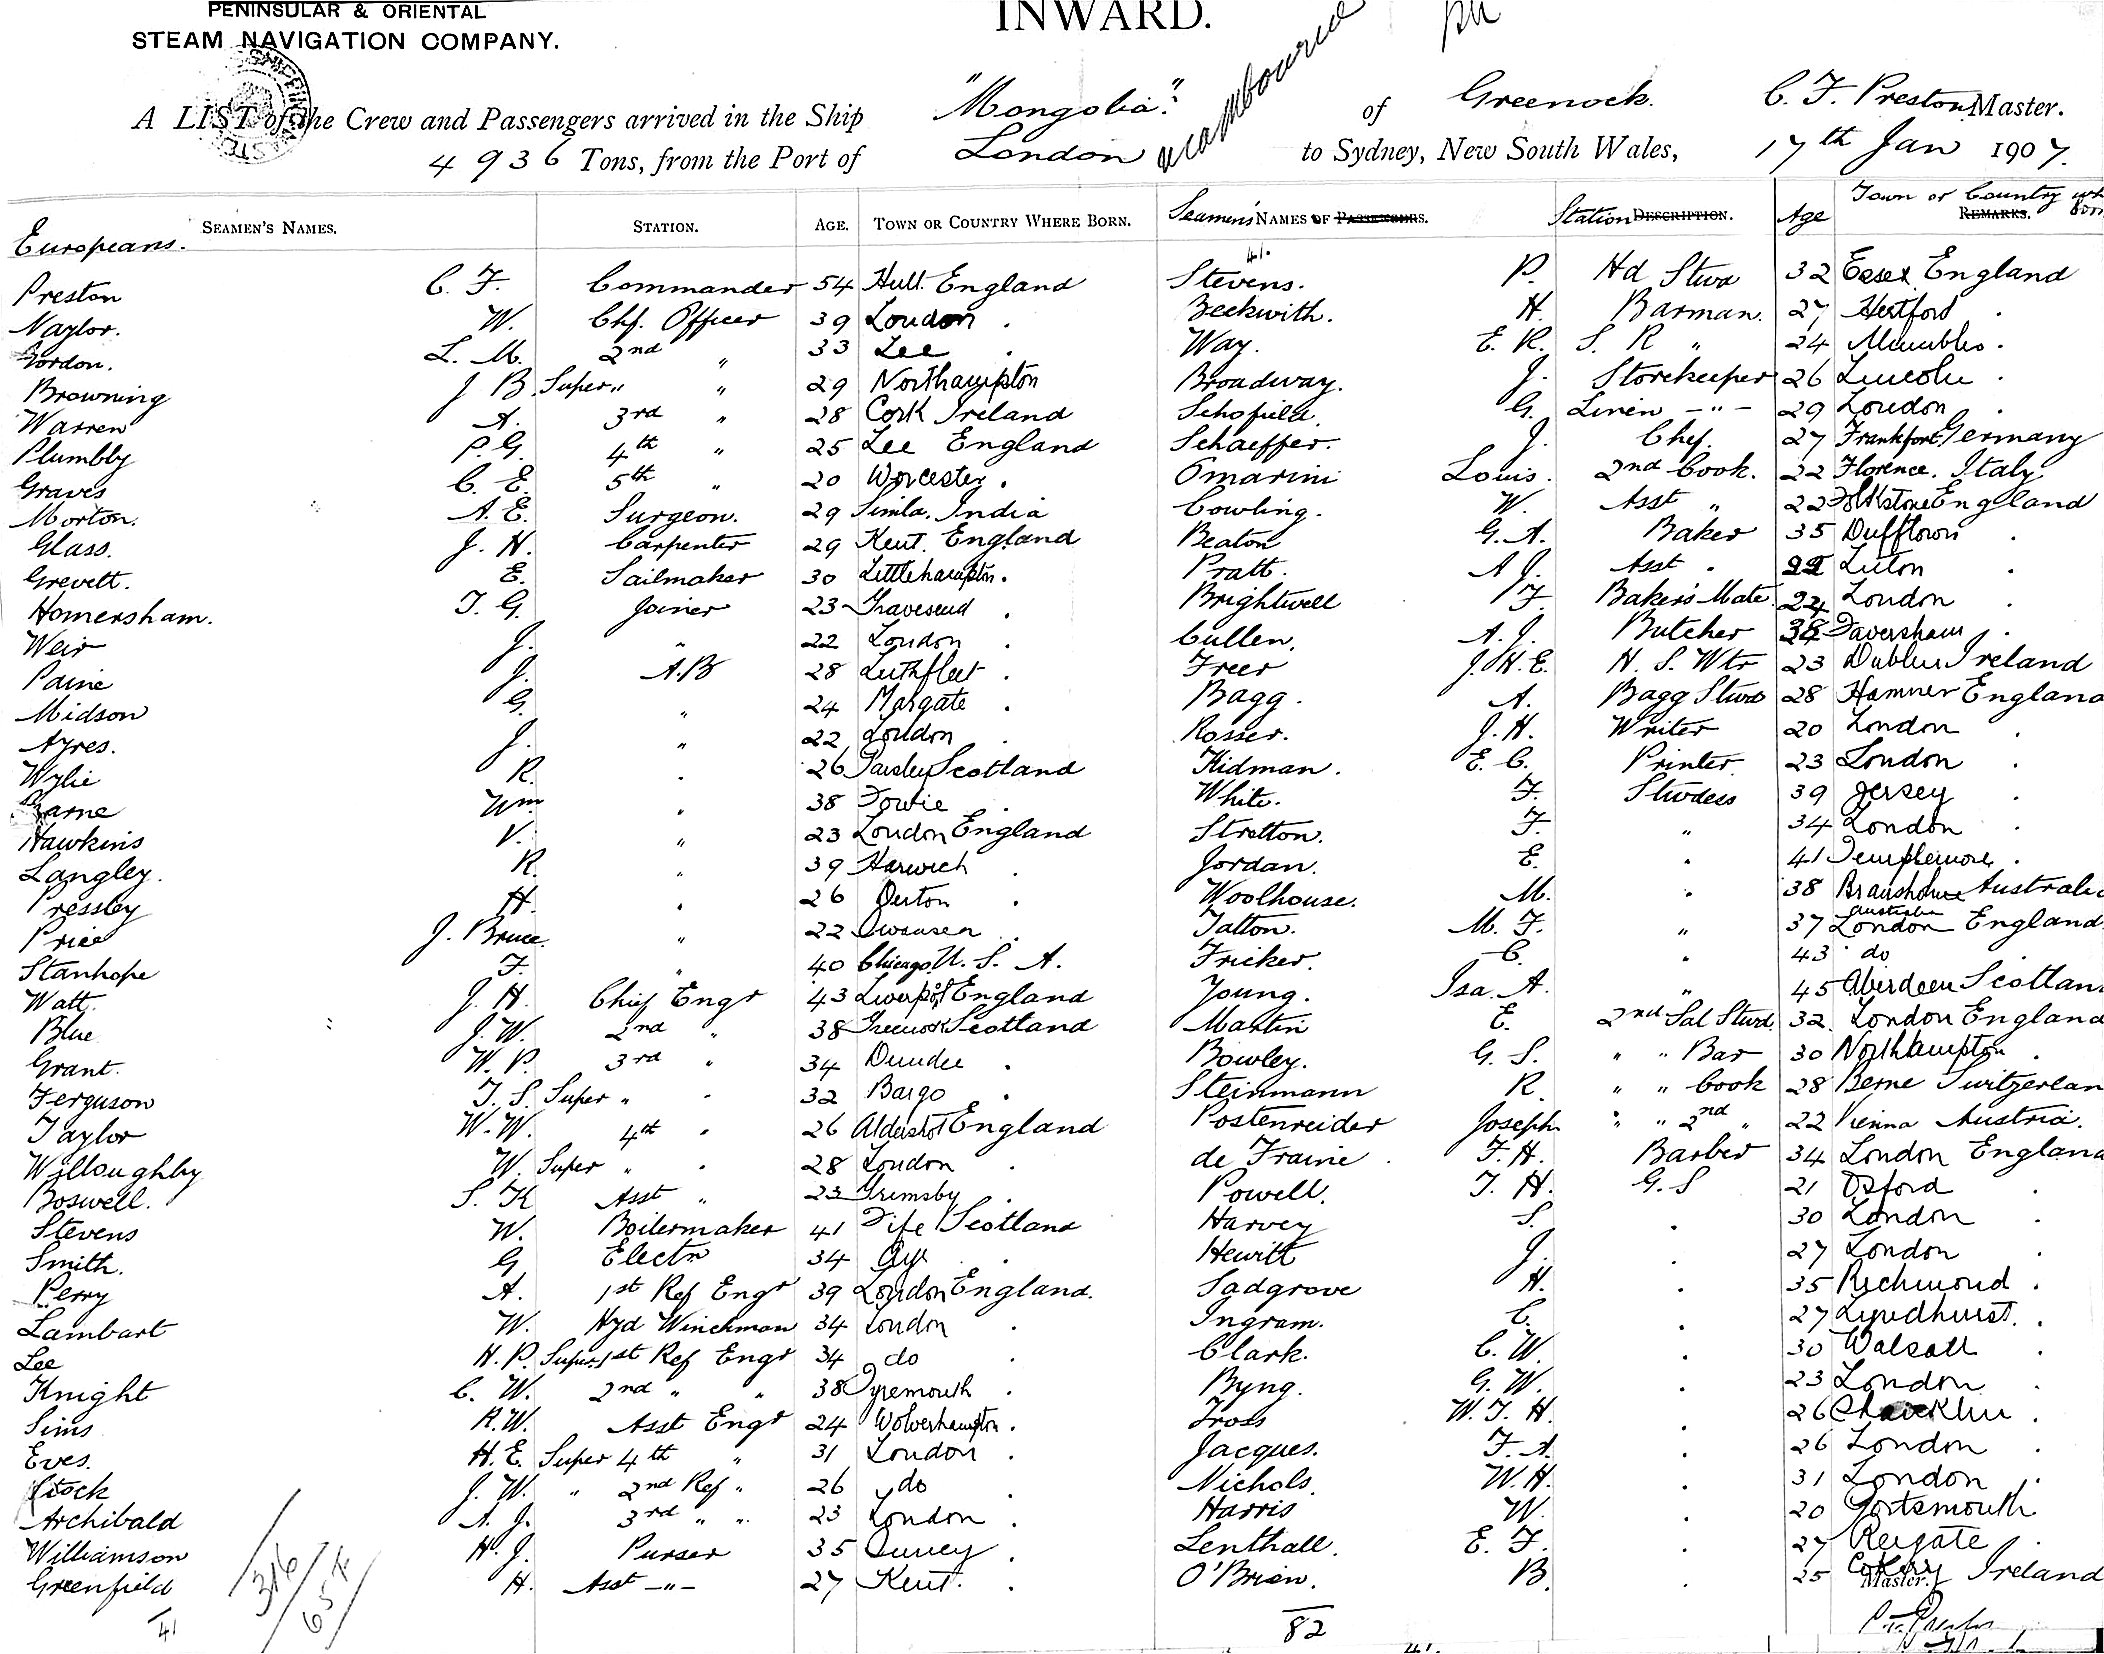 PENINSULAR & ORIENTAL
STEAM NAVIGATION COMPANY.
INWARD.
A LIST of the Crew and Passengers arrived in the Ship "Mongolia" of Greenock. C. F. Preston Master.
4936 Tons, from the Port of London to Sydney, New South Wales, 17th Jan 1907.
SEAMEN'S NAMES. STATION. AGE. TOWN OR COUNTRY WHERE BORN.
Europeans.
Preston C. F. Commander 54 Hull England
Naylor. W. Chf. Officer 39 London .
Gordon. L. M. 2nd " 33 Lee .
Browning J B Super " " 29 Northampton
Warren A. 3rd " 28 Cork Ireland
Plumbly P. G. 4th " 25 Lee England
Graves C. E. 5th " 20 Worcester .
Morton. A. E. Surgeon. 29 Simla. India
Glass. J. H. Carpenter 29 Kent. England
Grevett. E. Sailmaker 30 Littlehampton .
Homersham. T. G. Joiner 23 Gravesend .
Weir J. " 22 London .
Paine J. A.B 28 .
Midson G. " 24 Margate .
Ayres. J. " 22 London .
Wylie R. . 26 Paisley Scotland
Wm " 38 .
Hawkins V. " 23 London England
Langley. R. " 39 Harwich .
Pressley H. . 26 .
Price J. Bruce. " 22 Swansea .
Stanhope F. " 40 Chicago. U. S. A.
Watt. J. H. Chief Engr 43 Liverpool England
Blue J. W. 2nd " 38 Greenock Scotland
Grant. W. P. 3rd " 34 Dundee .
Ferguson T. S. Super " . 32 .
Taylor W. W. 4th . 26 Aldershot England
Willoughby W. Super " . 28 London .
Boswell. S. K Asst " 23 Grimsby .
Stevens W. Boilermaker 41 Fife Scotland
Smith. G Electn 34 Ayr .
Perry A. 1st Ref Engr 39 London England.
Lambart W. Hyd Winchman 34 London .
Lee H. P. Super. 1st Ref Engr 34 do .
Knight C. W. 2nd " " 38 .
Sims R. W. Asst Engr 24 Wolverhampton .
Eves. H. E. Super 4th " 31 London .
Stock J. W. " 2nd Ref " 26 do
Archibald A. J. 3rd " " 23 London .
Williamson H. J. Purser 35 Surrey .
Greenfield H. Asst -"- 27 Kent. .
41
316/654/
Seamen's NAMES OF PASSENGERS. Station DESCRIPTION. Age Town or Country REMARKS.
41.
Stevens. P. Hd Stwd 32 Essex England
Beckwith. H. Barman. 27 Hertford .
Way. E. R. S. R " 24 Mumbles .
Broadway. J. Storekeeper 26 Lincoln .
Schofield. G. Linen -"- 29 London .
Schaeffer. J. Chef. 27 Frankfort Germany
Omarini Louis. 2nd Cook. 22 Florence. Italy
Cowling. W. Asst " 22 Folkstone England
Beaton G. A. Baker 35 Dufftown .
Pratt. A J. Asst . 22 Luton .
Brightwell F. Baker's Mate 24 London .
Cullen. A. J. Butcher 38 Faversham .
Freer J. H. E. H. S. Wtr 23 Dublin Ireland
Bagg. A. Bagg Stwd 28 England
Rosser. J. H. Writer 20 London .
Kidman. E. C. Printer 23 London .
White. F. Stwdess 39 Jersey .
Stretton. F. " 34 London .
Jordan. E. . 41 Templemore .
Woolhouse. M. . 38 Australia
Tatton. M. F. " 37 London England
Fricker. C. . 43 do
Young. Isa. A. " 45 Aberdeen Scotland
Martin E. 2nd Sal Stwd. 32 London England
Bowley. G. S. " " Bar 30 Northampton .
Steinmann R. " " Cook 28 Berne Switzerlan
Postenreider Joseph " " 2nd " 22 Vienna Austria.
de Fraine F. H. Barber 34 London England
Powell. T. H. G. S 21 Oxford .
Harvey S. . 30 London .
Hewitt J. . 27 London .
Sadgrove H. . 35 Richmond .
Ingram. C. . 27 Lyndhurst. .
Clark. C. W. . 30 Walsall .
Byng. G. W. . 23 London .
W. T. H. . 26 .
Jacques. F. A. . 26 London .
Nichols. W. H. . 31 London .
Harris W. . 20 Portsmouth
Lenthall. E. F. . 27 Reigate .
O'Brien. B. . 25 Ireland
Master.
82
41.